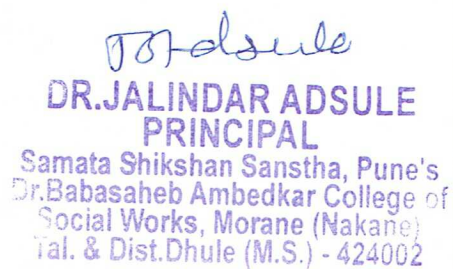 DR.JALINDAR ADSULE
PRINCIPAL
Samata Shikshan Sanstha, Pune's
Dr.Babasaheb Ambedkar College of
Social Works, Morane (Nakane)
Tal. & Dist.Dhule (M.S.) - 424002